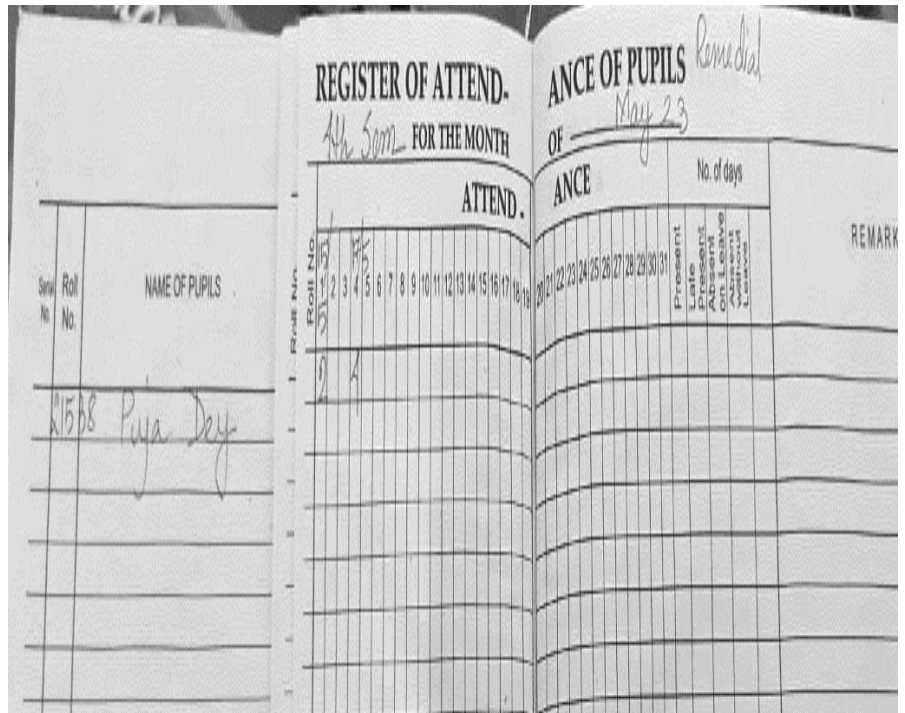 REGISTER OF ATTEND-ANCE OF PUPILS Remedial
4th Sem FOR THE MONTH OF May 23
ATTEND-ANCE
No. of days
REMARK
Serial No.
Roll No.
NAME OF PUPILS
Roll No.
Roll No
1 2 3 4 5 6 7 8 9 10 11 12 13 14 15 16 17 18 19 20 21 22 23 24 25 26 27 28 29 30 31
Present
Late Present
Absent on Leave
Absent without Leave
2158 Puja Dey
2 4